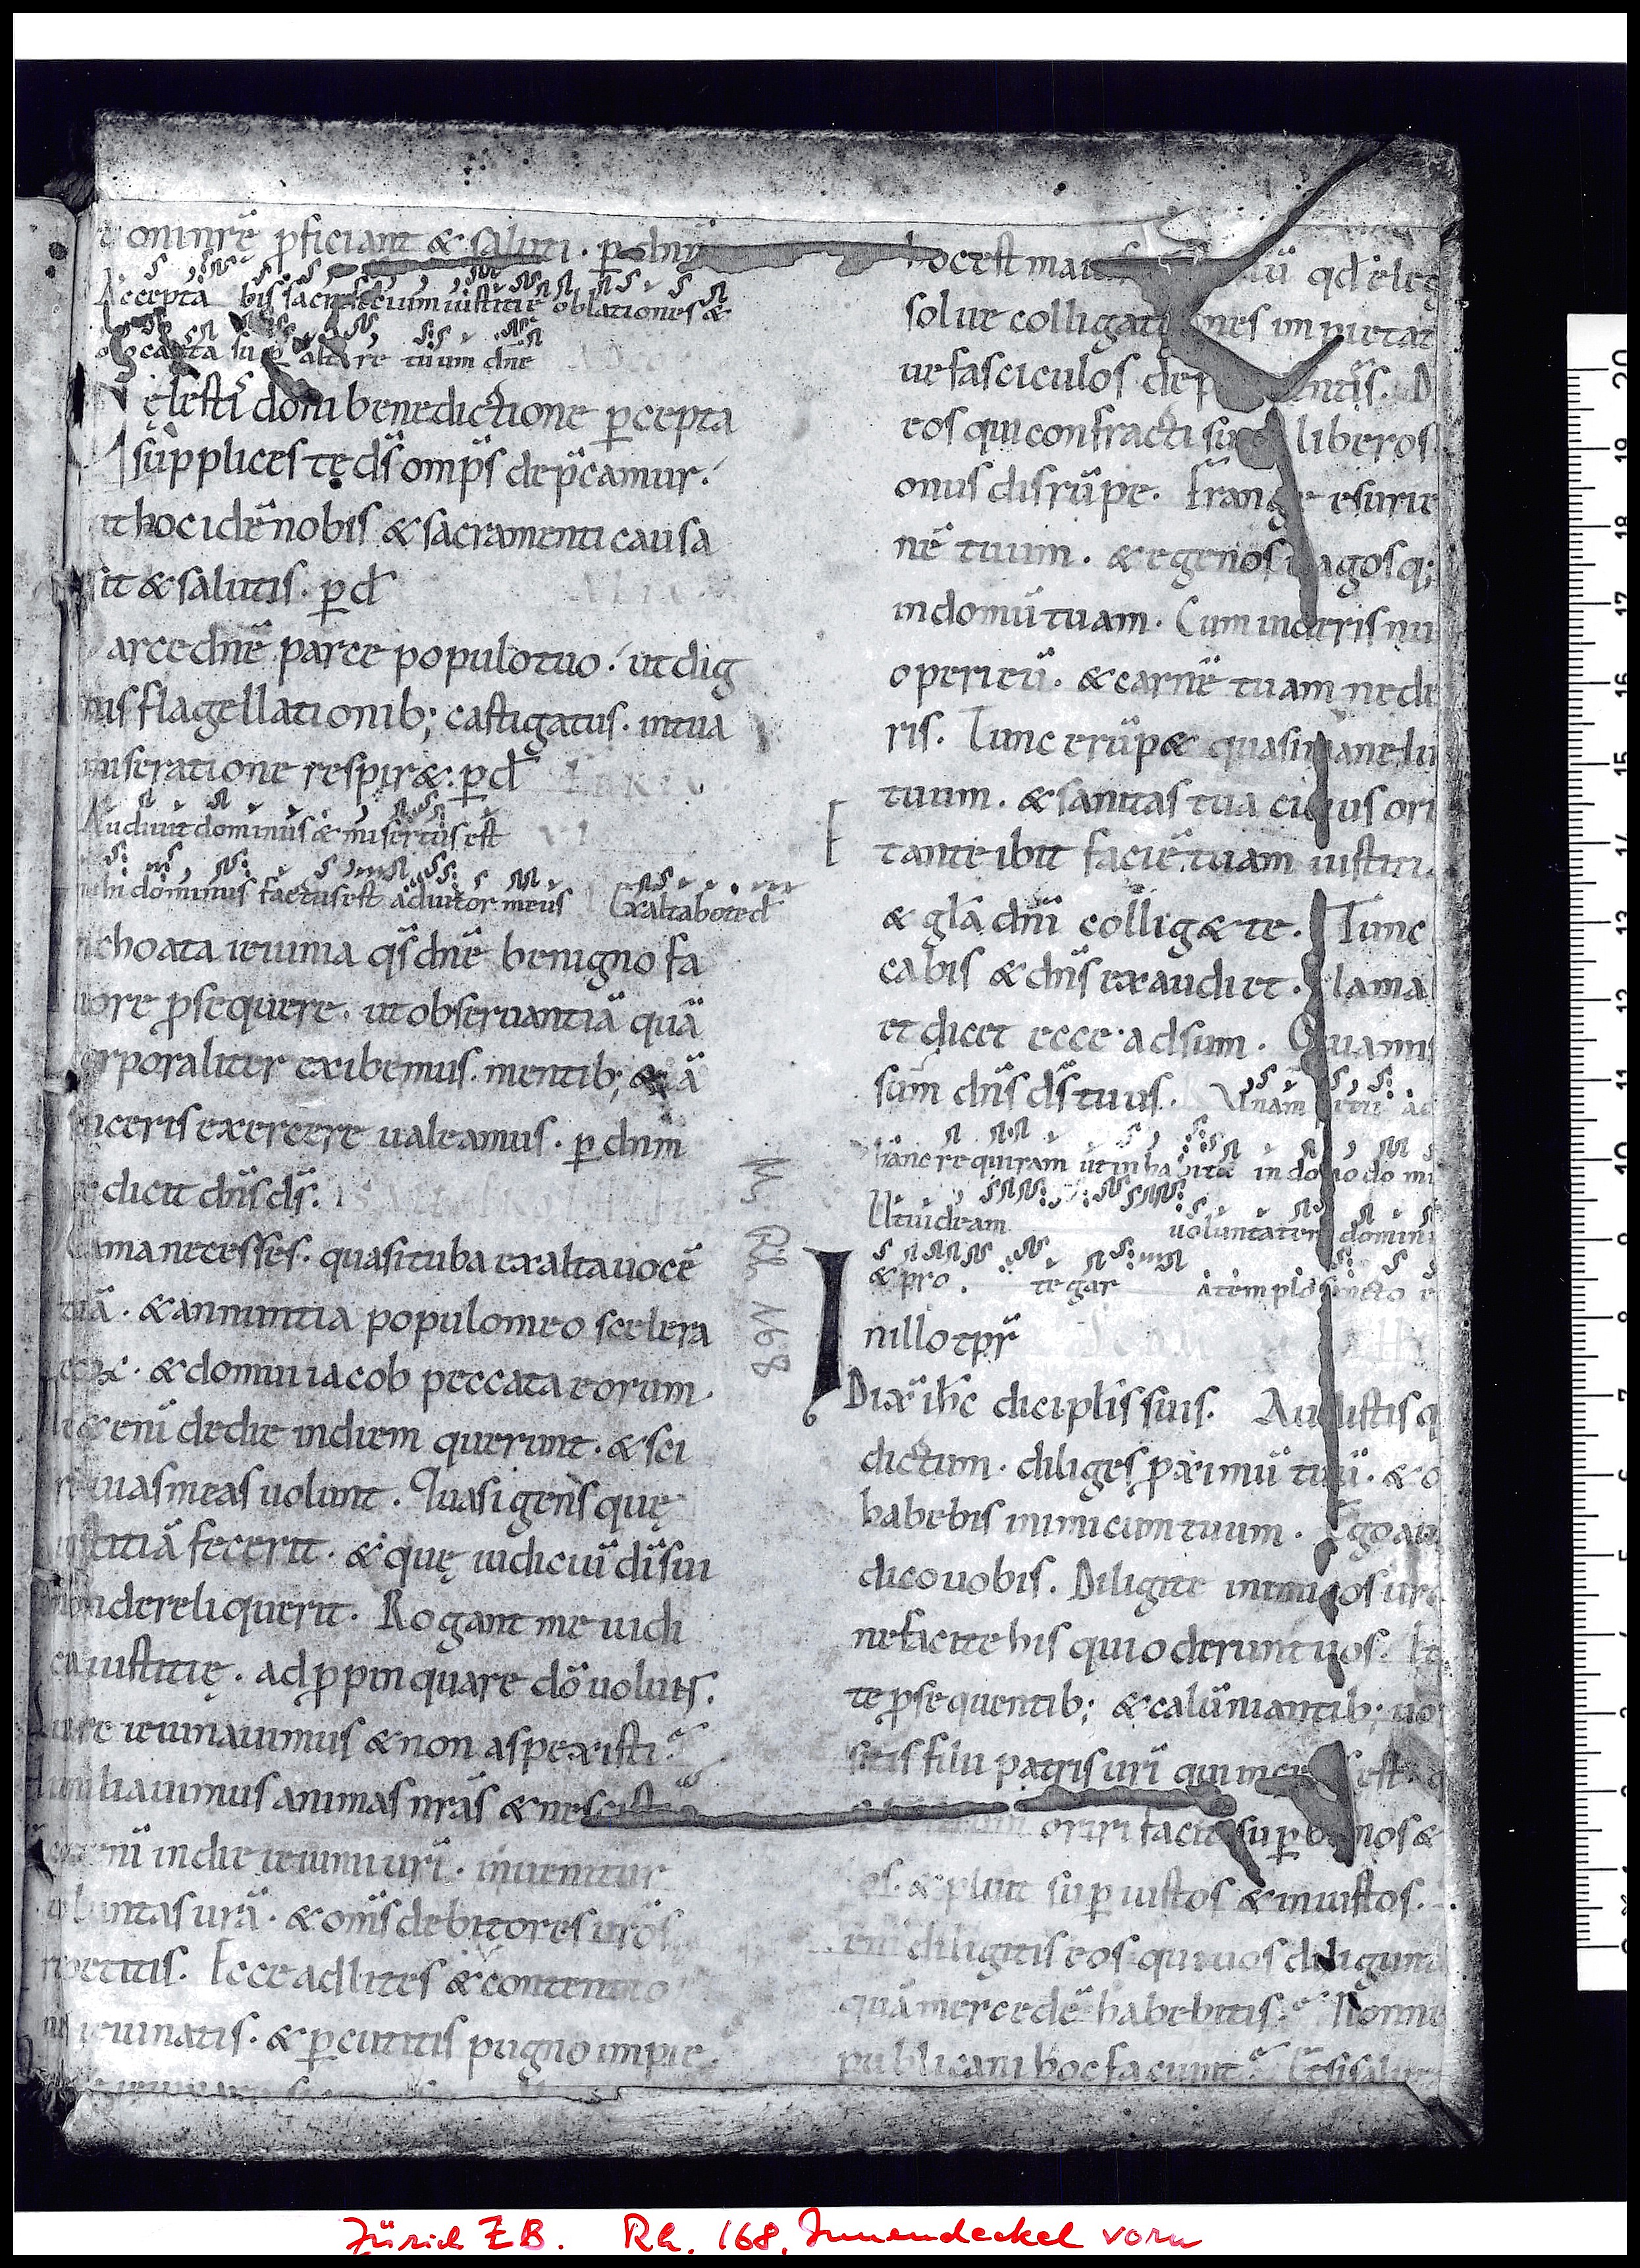 nomin̄rę ꝓficiant & saluti. ꝑ dn̄m
Accepta bis sacrificium iustitie oblationes &
sup altare tuum dn̄e
ęlesti doni benedictione ꝑcepta
supplices te ds̄ omp̄s dep̄camur.
ut hoc idē nobis & sacramenti causa
sit & salutis. ꝑ d̄
arce dn̄e parce populo tuo. ut dig
nis flagellationib; castigatus. in tua
miseratione respir&. ꝑ d̄
Audiuit dominus & misertus est
mihi dominus factus est adiutor meus Exaltabo te d̄
nchoata ieiunia qs̄ dn̄e benigno fa
uore ꝓsequere. ut obseruantiā quā
corporaliter exibemus. mentib; &iā
sinceris exercere ualeamus. ꝑ dn̄m
dicit dn̄s ds̄.
clama ne cesses. quasi tuba exalta uocē
tuā. & annuntia populo meo scelera
eoꝝ. & domui iacob peccata eorum.
&enī de die in diem querunt. & sci
re uias meas uolunt. Quasi gens quę
iustitiā fecerit. & quę iudiciū dī sui
non dereliquerit. Rogant me iudi
cia iustitię. adꝓpinquare dō uolunt.
quare ieiunauimus & non aspexisti?
humiliauimus animas nr̄as & nescisti
enī in die ieiunii ur̄i. inuenitur
uoluntas ur̄a. & om̄s debitores ur̄os
repetitis. Ecce ad lites & contentio
nes ieiunatis. & ꝑcutitis pugno impie.
hoc est qd̄ eleg
solue colligationes impietat
ue fasciculos dep ntēs. D
eos qui confracti sunt liberos
onus disrūpe. Frange esurie
nē tuum. & egenos uagosq;
in domū tuam. Cum uideris nu
operi eū. & carnē tuam ne de
ris. Tunc erūp& quasi mane lu
tuum. & sanitas tua citius ori
t ante ibit faciē tuam iustiti
& gl̄a dn̄i collig& te. Tunc
cabis & dn̄s exaudiet. clama
et dicet ecce adsum. Quia mis
sum dn̄s ds̄ tuus. Unam
hanc requiram ut inhabitē in domo domi
Ut uideam uoluntatem domini
& pro tegar a templo sancto
In illo tpr̄
Dix̄ ih̄c dicipl̄is suis. Audistis q
dictum. diliges ꝓximū tuū. & o
habebis inimicum tuum. Ego au
dico uobis. Diligite inimicos ur̄o
nefacite his qui oderunt uos. Et
te ꝓsequentib; & calūniantib; uo
sitis filii patris ur̄i qui in est
oriri facit suꝑ bonos &
os. & pluit suꝑ iustos & iniustos.
enī diligitis eos qui uos diligunt
quā mercedē habebitis? Nonne
publicani hoc faciunt? Et si salut
Ms Rh 168
20
19
18
17
16
15
14
13
12
11
10
9
8
7
6
5
4
3
2
1
0
Zürich ZB. Rh. 168, Innendeckel vorn